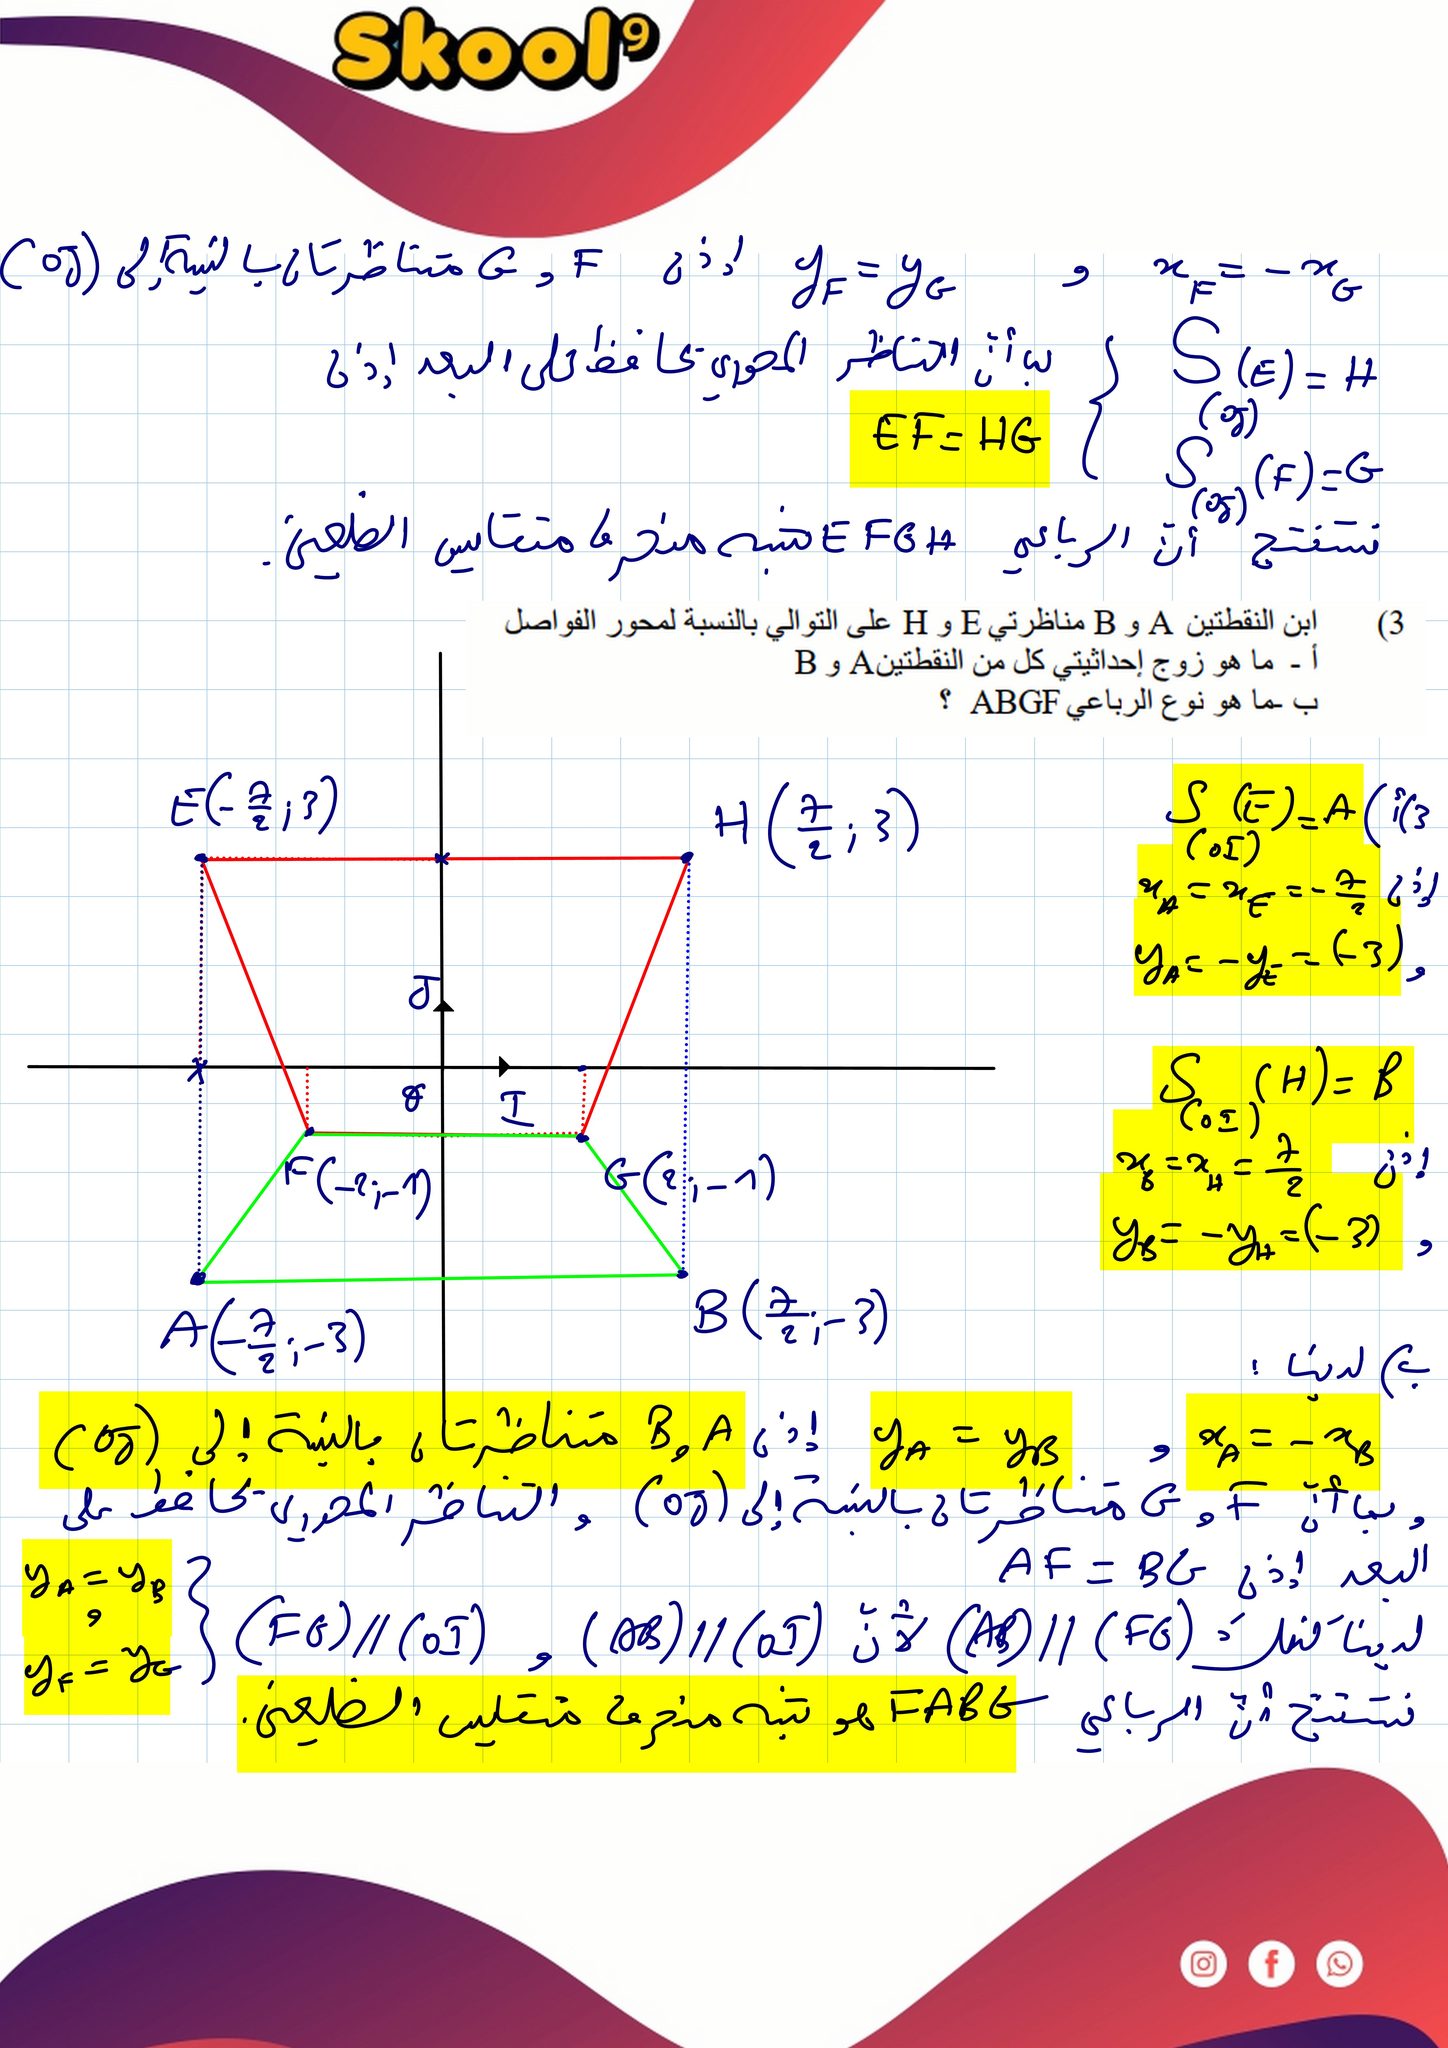 Skool9
x_F = -x_G و y_F = y_G إذن F و G متناظرتان بالنسبة إلى (OJ)
S_(OJ)(E) = H
S_(OJ)(F) = G
بما أنّ التناظر المحوري يحافظ على البعد إذن
EF = HG
نستنتج أنّ الرباعي EFGH شبه منحرف متقايس الضلعين.
3) ابن النقطتين A و B مناظرتي E و H على التوالي بالنسبة لمحور الفواصل
أ - ما هو زوج إحداثيتي كل من النقطتين A و B
ب -ما هو نوع الرباعي ABGF ؟
E(-7/2 ; 3)
H(7/2 ; 3)
J
O
I
F(-2 ; -1)
G(2 ; -1)
A(-7/2 ; -3)
B(7/2 ; -3)
3) أ) S_(OI)(E) = A
إذن x_A = x_E = -7/2
و y_A = -y_E = (-3)
S_(OI)(H) = B
إذن x_B = x_H = 7/2
و y_B = -y_H = (-3)
ب) لدينا :
x_A = -x_B و y_A = y_B إذن A و B متناظرتان بالنسبة إلى (OJ)
و بما أنّ F و G متناظرتان بالنسبة إلى (OJ) و التناظر المحوري يحافظ على
البعد إذن AF = BG
لدينا كذلك (AB) // (FG) لأنّ (AB) // (OI) و (FG) // (OI)
y_A = y_B
و
y_F = y_G
نستنتج أنّ الرباعي FABG هو شبه منحرف متقايس الضلعين.